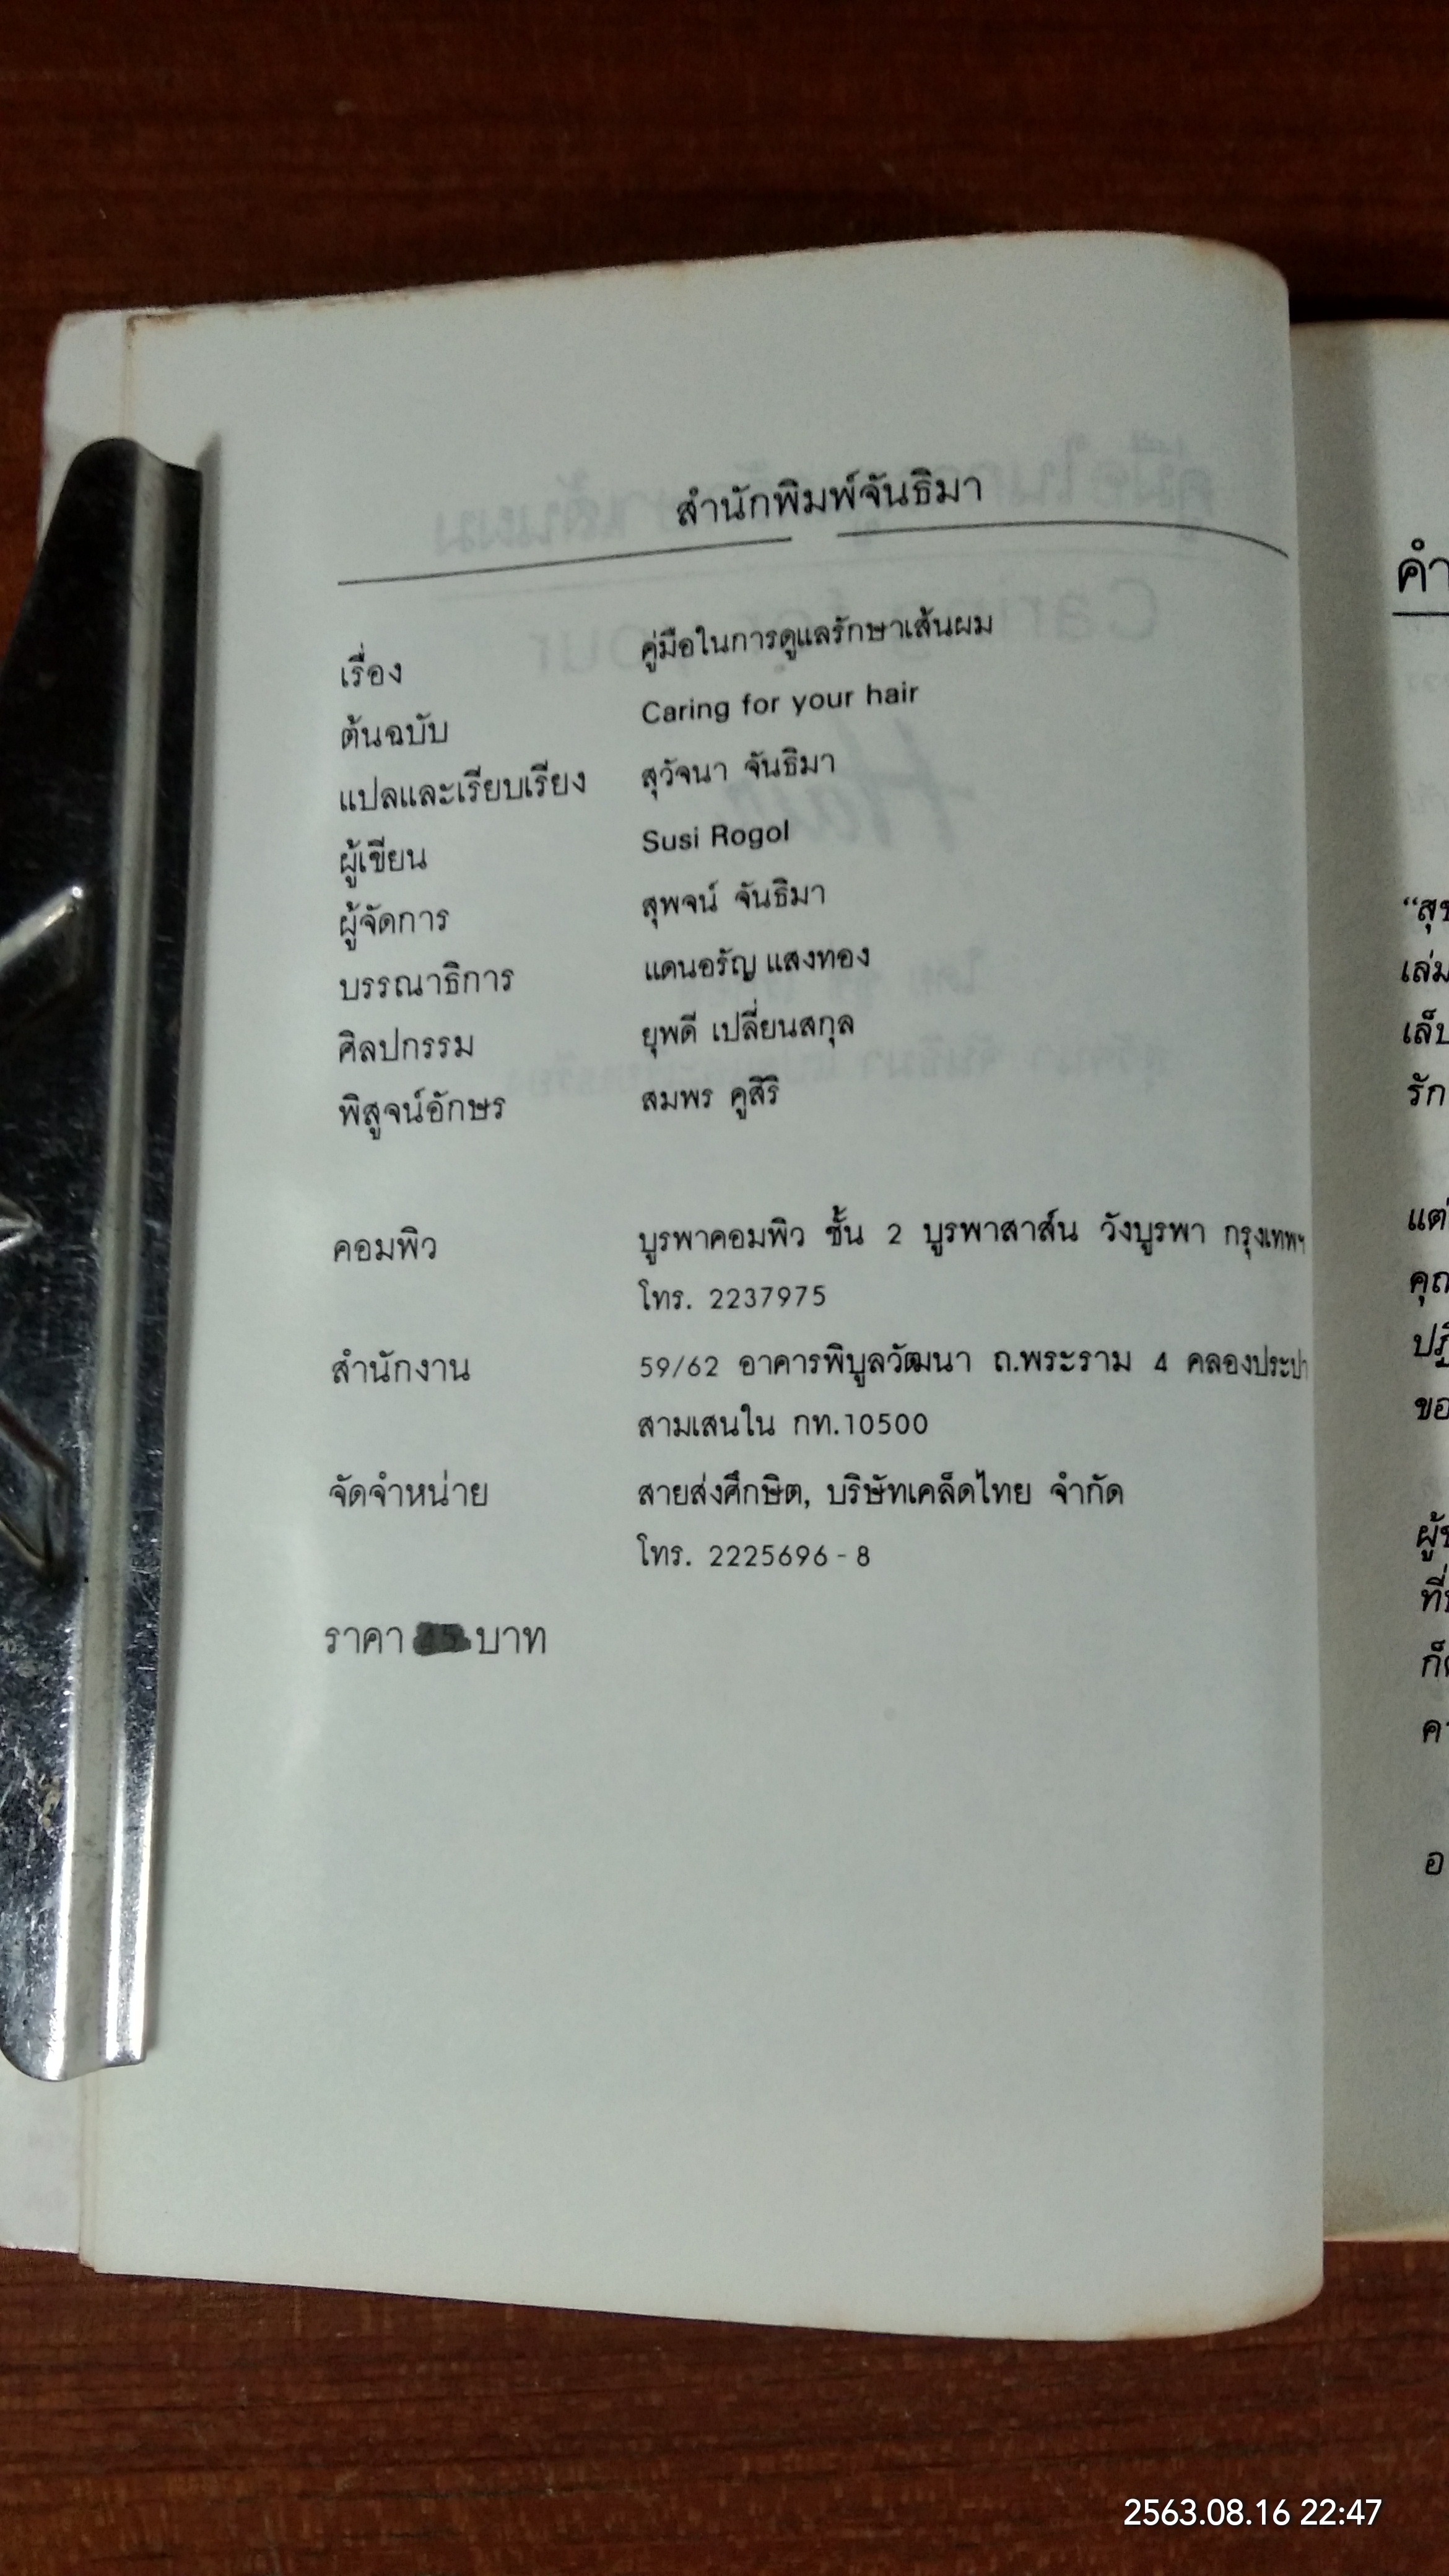 สำนักพิมพ์จันธิมา
เรื่อง คู่มือในการดูแลรักษาเส้นผม
ต้นฉบับ Caring for your hair
แปลและเรียบเรียง สุวัจนา จันธิมา
ผู้เขียน Susi Rogol
ผู้จัดการ สุพจน์ จันธิมา
บรรณาธิการ แดนอรัญ แสงทอง
ศิลปกรรม ยุพดี เปลี่ยนสกุล
พิสูจน์อักษร สมพร คูสิริ
คอมพิว บูรพาคอมพิว ชั้น 2 บูรพาสาส์น วังบูรพา กรุงเทพฯ
โทร. 2237975
สำนักงาน 59/62 อาคารพิบูลวัฒนา ถ.พระราม 4 คลองประปา
สามเสนใน กท.10500
จัดจำหน่าย สายส่งศึกษิต, บริษัทเคล็ดไทย จำกัด
โทร. 2225696-8
ราคา บาท
2563.08.16 22:47